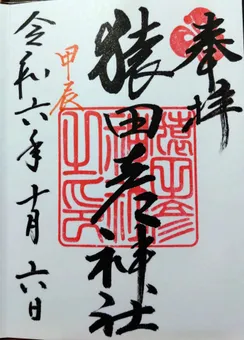 奉拝
猿田彦神社
甲辰
令和六年十月六日